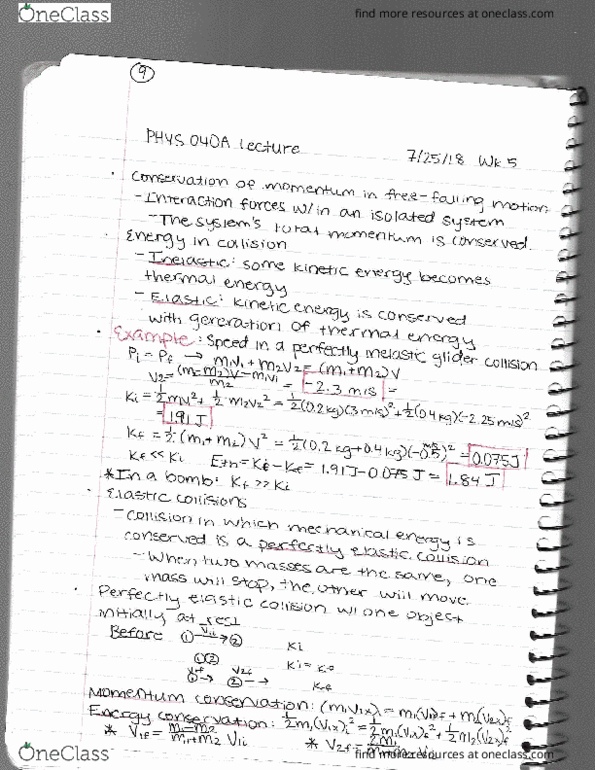 OneClass
find more resources at oneclass.com
9
PHYS 040A Lecture
7/25/18 Wk 5
· Conservation of momentum in free-falling motion
- Interaction forces w/in an isolated system
- The system's total momentum is conserved.
· Energy in collision
- Inelastic: some kinetic energy becomes
thermal energy
- Elastic: kinetic energy is conserved
with generation of thermal energy
· Example: Speed in a perfectly inelastic glider collision
Pi = Pf → m₁v₁ + m₂v₂ = (m₁+m₂)v
v₂ = (m₁+m₂)v - m₁v₁ / m₂ = -2.3 m/s =
Ki = ½m₁v₁² + ½m₂v₂² = ½(0.2kg)(3 m/s)² + ½(0.4kg)(-2.25 m/s)²
= 1.91 J
Kf = ½(m₁+m₂)v² = ½(0.2kg+0.4kg)(-0.5 m/s)² = 0.075J
Kf << Ki Eth = Ki - Kf = 1.91J - 0.075J = 1.84 J
*In a bomb: Kf >> Ki
· Elastic collisions
- Collision in which mechanical energy is
conserved is a perfectly elastic collision
- When two masses are the same, one
mass will stop, the other will move.
· Perfectly elastic collision w/ one object
initially at rest
Before ① V₁ᵢ→ ②
Ki
①②
Ki = Kf
V₁f ①→ V₂f ②→
Kf
Momentum conservation: (m₁V₁x)ᵢ = m₁(V₁x)f + m₂(V₂x)f
Energy conservation: ½m₁(V₁x)ᵢ² = ½m₁(V₁x)f² + ½m₂(V₂x)f²
* V₁f = m₁-m₂ / m₁+m₂ V₁ᵢ * V₂f = 2m₁
OneClass
find more resources at oneclass.com